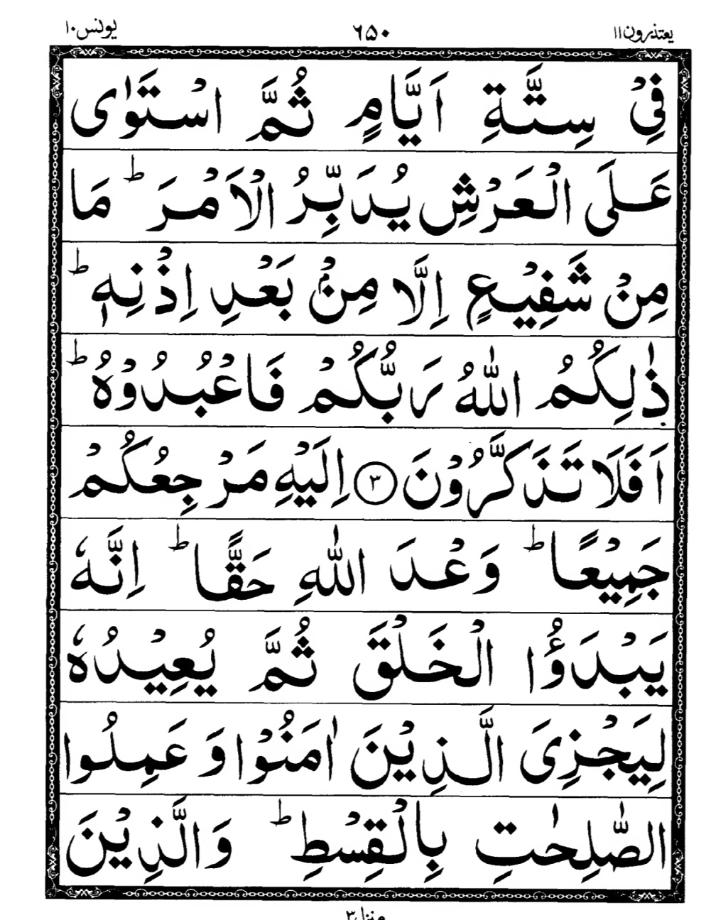 یعتذرون۱۱ ۶۵۰ یونس۱۰
فِیْ سِتَّةِ اَیَّامٍ ثُمَّ اسْتَوٰی
عَلَی الْعَرْشِ یُدَبِّرُ الْاَمْرَ ؕ مَا
مِنْ شَفِیْعٍ اِلَّا مِنْۢ بَعْدِ اِذْنِهٖ ؕ
ذٰلِكُمُ اللّٰهُ رَبُّكُمْ فَاعْبُدُوْهُ ؕ
اَفَلَا تَذَكَّرُوْنَ ۳ اِلَیْهِ مَرْجِعُكُمْ
جَمِیْعًا ؕ وَعْدَ اللّٰهِ حَقًّا ؕ اِنَّهٗ
یَبْدَؤُا الْخَلْقَ ثُمَّ یُعِیْدُهٗ
لِیَجْزِیَ الَّذِیْنَ اٰمَنُوْا وَ عَمِلُوا
الصّٰلِحٰتِ بِالْقِسْطِ ؕ وَالَّذِیْنَ
منزل۳